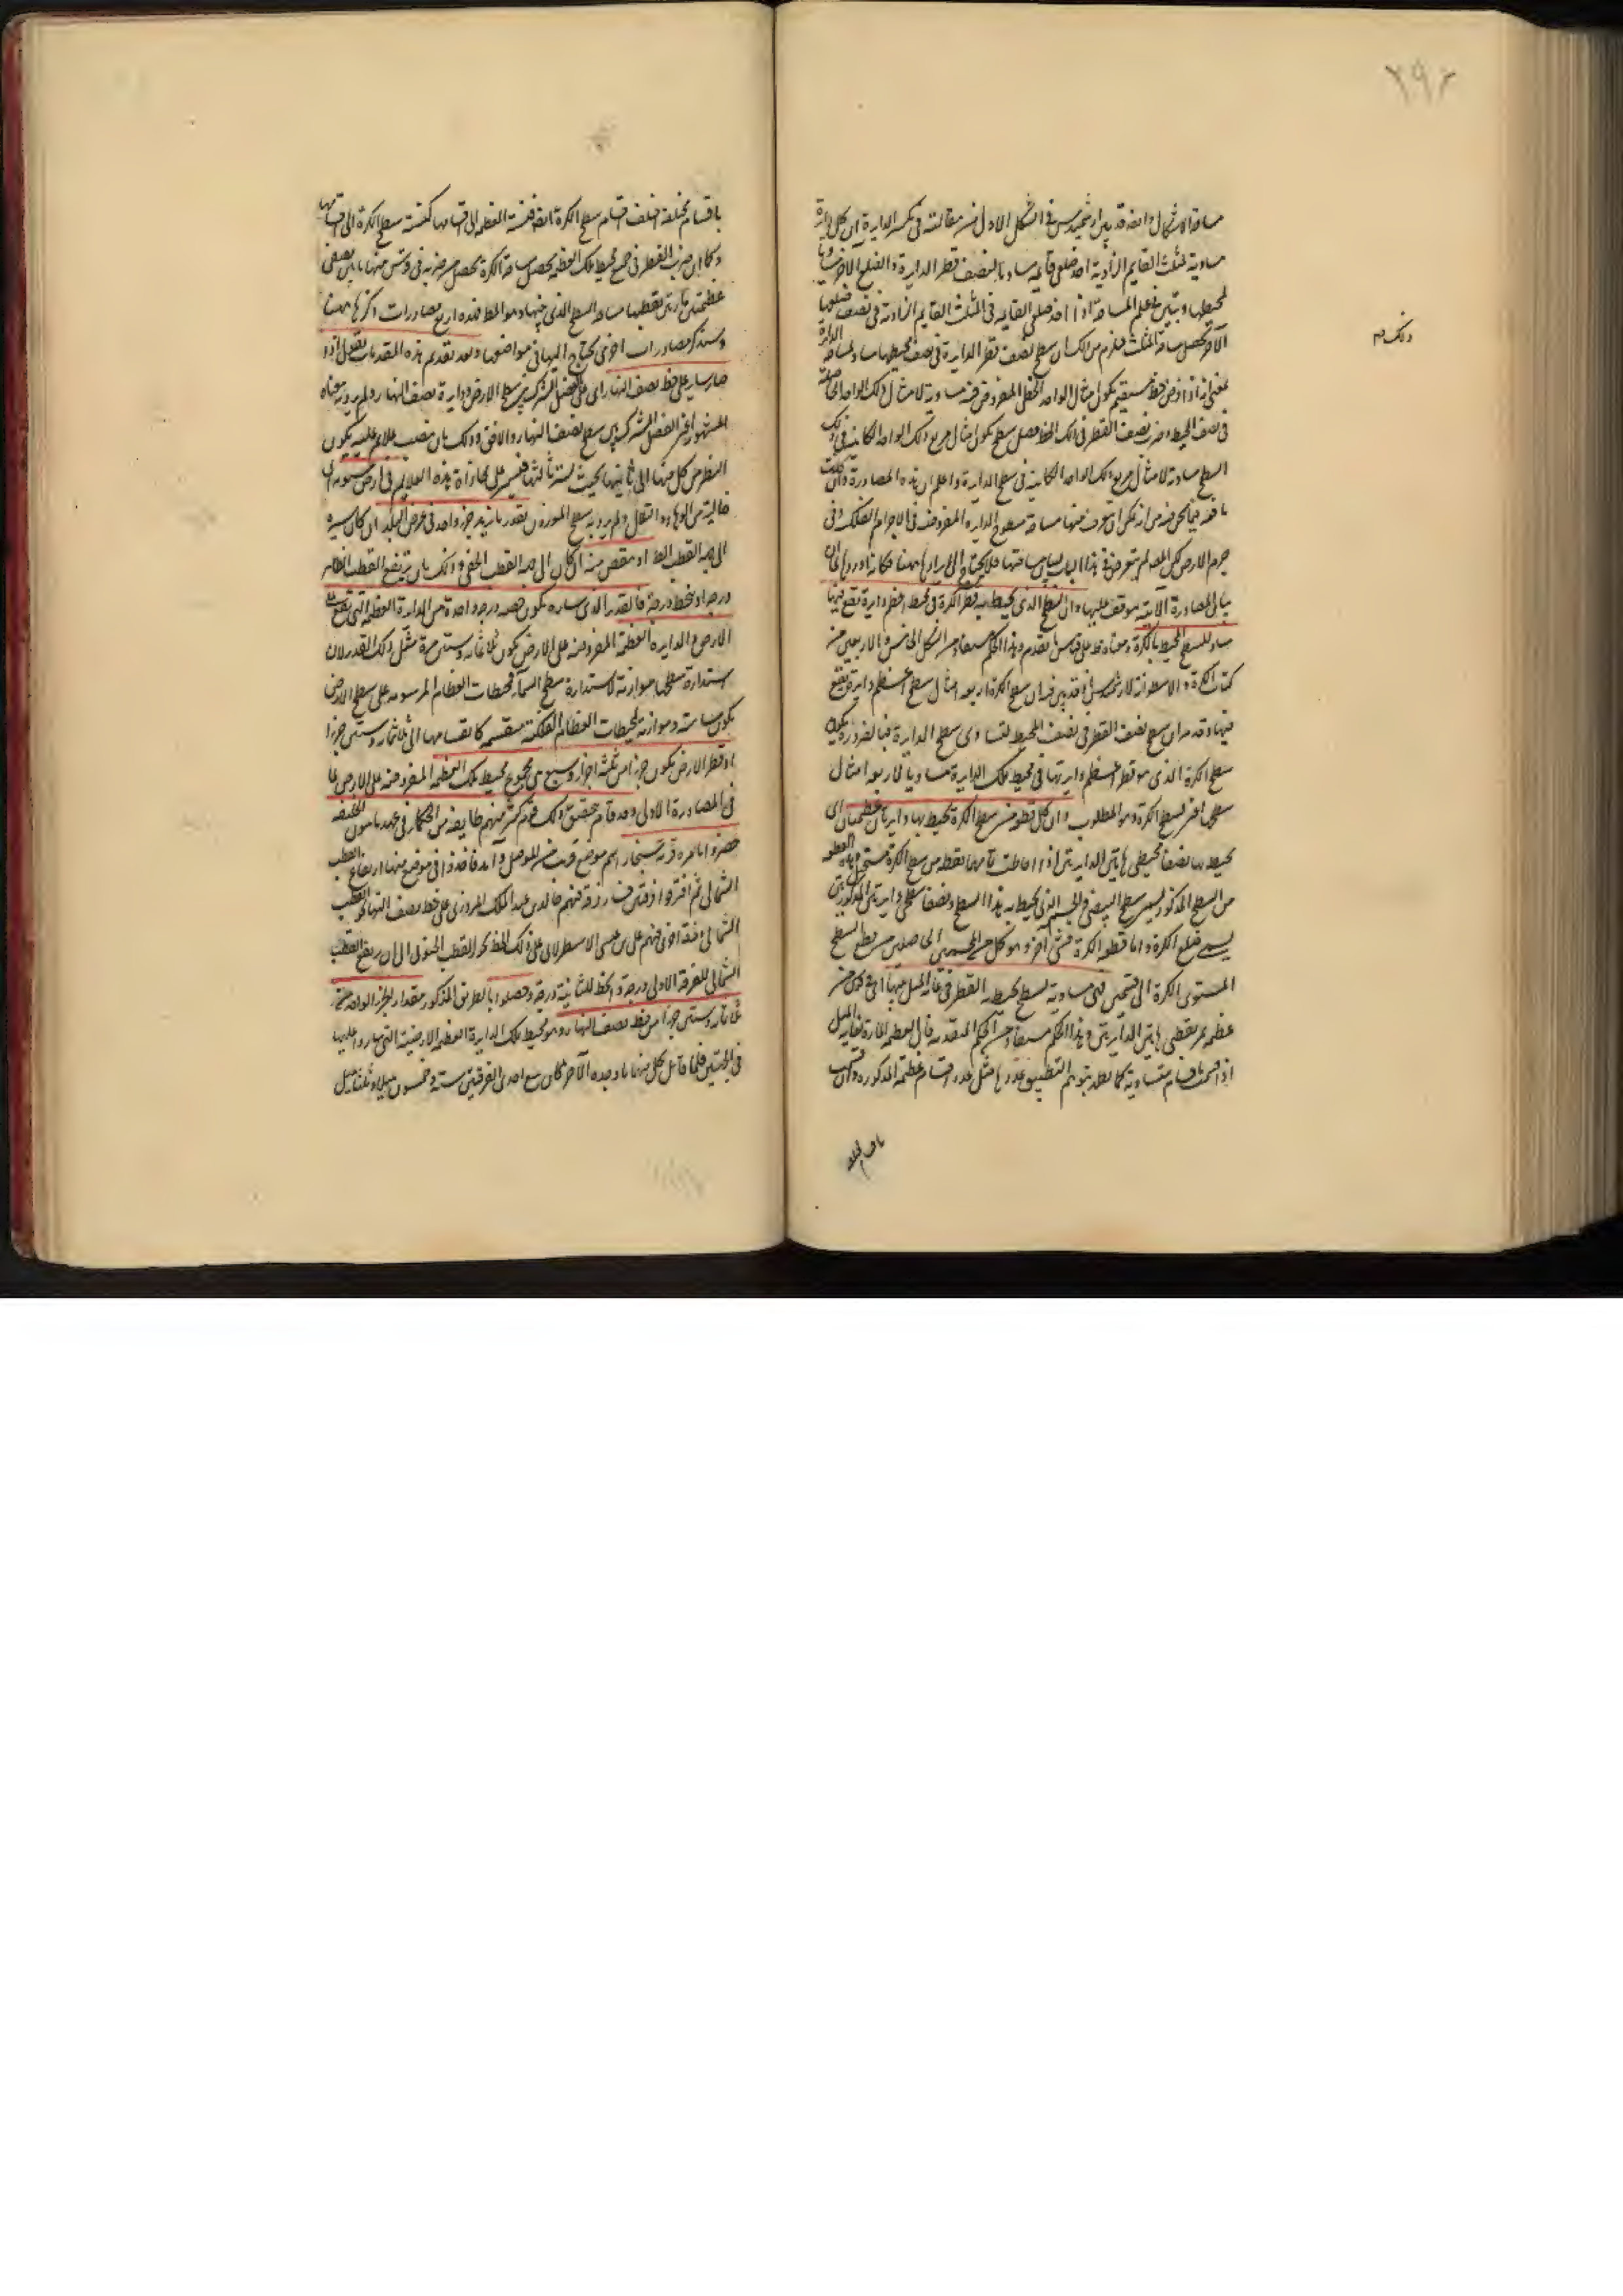 ٢٩٢
مساحة الاشكال وايضا قد بين ارشميدس في الشكل الاول من مقالته في تكسير الدايرة ان كل دايرة
مساوية لمثلث القايم الزاوية احد ضلعي قايمه مساو لنصف قطر الدايرة والضلع الآخر مساويا
لمحيطها وتبين في علم المساحة اذا احد ضلعي القايمة في المثلث القايم الزاوية في نصف ضلعها
الآخر تحصل مساحة المثلث فلزم من ذلك ان سطح نصف قطر الدايرة في نصف محيطها مساو لمساحة الدايرة
ذلك
بمعنى انه اذا فرض خط مستقيم يكون امثال الواحد الخطي المفروض فيه مساوية لامثال ذلك الواحد الحاصلة
في نصف المحيط وضرب نصف القطر في ذلك الخط حصل سطح يكون امثال مربع ذلك الواحد الكاينة في ذلك
السطح مساوية لامثال مربع ذلك الواحد الكاينة في سطح الدايرة واعلم ان هذه المصادرة وان كانت
نافعة فيما نحن فيه من انه يمكن ان تعرف منها مساحة سطوح الداير المفروضة في الاجرام الفلكية وفي
جرم الارض لكن المص لم يتعرض في هذا الباب لبيان مساحتها فلا يحتاج الى ايرادها ههنا فكانه اوردها لان
بيان المصادرة الآتية موقوف عليها وان السطح الذي يحيط به قطر الكرة في محيط اعظم دايرة تقع فيها
مساو للسطح المحيط بالكرة ومعناه على قياس ما تقدم وهذا الحكم مستفاد من الشكل الخامس والاربعين من
كتاب الكرة والاسطوانة لارشميدس فانه قد بين فيه ان سطح الكرة اربعة امثال سطح اعظم دايرة تقع
فيها وقد مر ان سطح نصف القطر في نصف المحيط لتساوي سطح الدايرة فبالضرورة يكون
سطح الكرة الذي هو قطر اعظم دايرتها في محيط تلك الدايرة مساويا لاربعة امثال
سطحها اعني لسطح الكرة وهو المطلوب وان كل قطعة من سطح الكرة تحيط بها دايرتان عظيمتان اي
يحيط بها نصفا محيطي هاتين الدايرتين اذا احاطت بهما قطعة من سطح الكرة فتسمى هذه القطعة
من السطح المذكور
يسمى ضلع الكرة واما قطعة الكرة فشيء آخر وهو كل من الجسمين الحاصلين من قطع السطح
المستوي الكرة الى قسمين فهي مساوية لسطح يحيط به القطر في غاية الميل بينهما اي في قوس من
عظيمة تمر بقطبي هاتين الدايرتين وهذا الحكم مستفاد من الحكم المتقدم فان العظيمة المارة بغاية الميل
اذا قسمت باقسام متساوية كما نعد بتوهم التطبيق عددها مثل عدد اقسام عظيمة المذكورة وان قسمت
باقسام مختلفة
باقسام مختلفة اختلف اقسام سطح الكرة ايضا فنسبة العظيمة الى اقسامها كنسبة سطح الكرة الى اقسامها
وكما ان ضرب القطر في جميع محيط تلك العظيمة يحصل مساحة الكرة يحصل من ضربه في قوس منها ما بين نصفي
عظيمتين مارتين بقطبيها مساحة السطح الذي بينهما وهو المط فهذه اربع مصادرات ذكرها ههنا
وسنذكر مصادرات اخرى يحتاج اليها في مواضعها وبعد تقديم هذه المقدمات نقول اذا
صار ساير على خط نصف النهار اي على الفصل المشترك بين سطح الارض ودايرة نصف النهار ولم يرد به معناه
المشهور اعني الفصل المشترك بين سطح نصف النهار والافق وذلك بان ينصب علايم عليه يكون
النظر من كل منها الى ثانيتها بحيث تستر ثالثتها فيسير على محاذاة هذه العلايم في ارض مستوية اي
خالية من الوهاد والتلال ولم يرد به سطح الموزون بقدر ما يزيد جزء واحد في عرض البلد ان كان سيره
الى جهة القطب الظ او ينقص منه ان كان الى جهة القطب الخفي وذلك بان يرتفع القطب الظاهر
درجة او ينحط درجة فالقدر الذي ساره يكون حصة درجة واحدة من الدايرة العظيمة التي تقع على
الارض والدايرة العظيمة المفروضة على الارض يكون ثلاثماية وستين مرة مثل ذلك القدر لان
استدارة سطحها موازية لاستدارة سطح السماء فمحيطات العظام المرسومة على سطح الارض
يكون مسامتة وموازية لمحيطات العظام الفلكية منقسمة كانقسامها الى ثلاثماية وستين جزءا
او قطر الارض يكون جزءا من ثلثة اجزاء وسبع من مجموع محيط تلك العظيمة المفروضة على الارض لما
في المصادرة الاولى وقد قام بتحقيق ذلك قوم منهم طايفة من الحكماء في عهد مامون الخليفة
حضروا بامره قرية سنجار اسم موضع قريب من الموصل وآمد فاخذوا في موضع منها ارتفاع القطب
الشمالي ثم افترقوا فرقتين فسارت فرقة منهم خالد بن عبد الملك المروزي على خط نصف النهار نحو القطب
الشمالي وفرقة اخرى فيهم علي بن عيسى الاسطرلابي على ذلك الخط نحو القطب الجنوبي الى ان ارتفع القطب
الشمالي للفرقة الاولى درجة وانحط للثانية درجة وحصلوا بالطريق المذكور مقدار الجزء الواحد من
ثلثماية وستين جزءا من خط نصف النهار وهو محيط تلك الدايرة العظيمة الارضية التي ساروا عليها
في الجهتين فلما قابل كل منهما ما وجده الآخر كان مع احدى الفرقتين ستة وخمسون ميلا وثلثا ميل